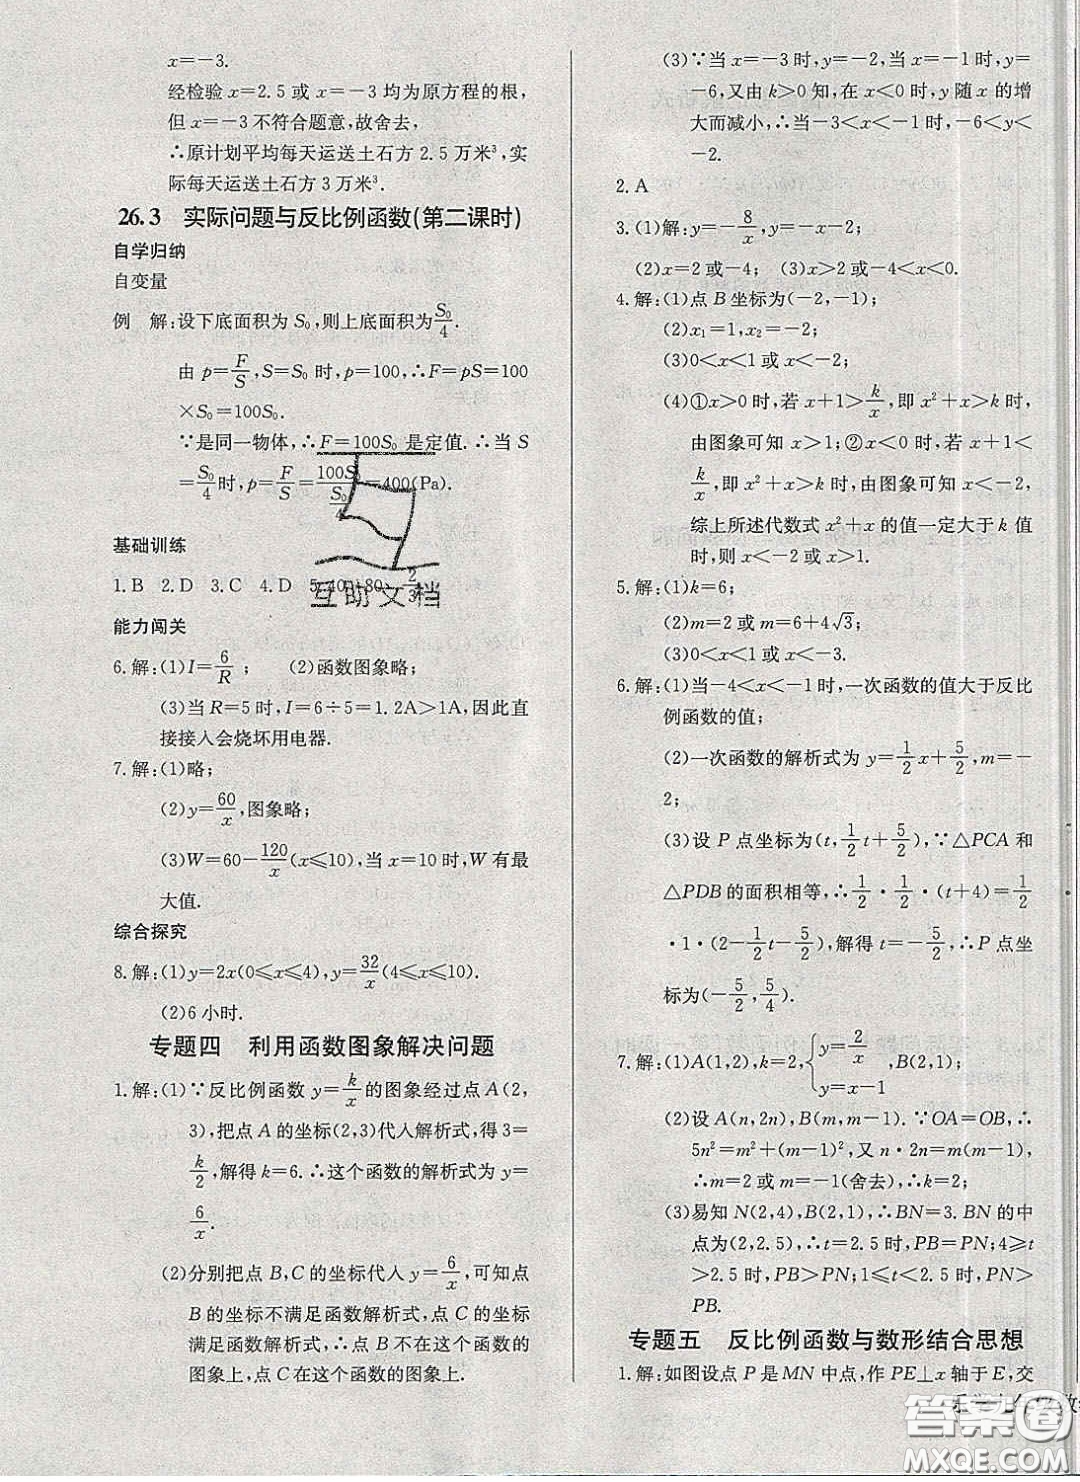 x=-3.
经检验 x=2.5 或 x=-3 均为原方程的根,
但 x=-3 不符合题意,故舍去,
∴原计划平均每天运送土石方 2.5 万米³,实
际每天运送土石方 3 万米³.
26.3 实际问题与反比例函数(第二课时)
自学归纳
自变量
例 解:设下底面积为 S₀,则上底面积为 S₀/4.
由 p=F/S,S=S₀ 时,p=100,∴F=pS=100
×S₀=100S₀.
∵是同一物体,∴F=100S₀ 是定值.∴当 S
=S₀/4 时,p=F/S=100S₀/(S₀/4)=400(Pa).
基础训练
1.B 2.D 3.C 4.D 5.40 80 2/3
能力闯关
6.解:(1)I=6/R; (2)函数图象略;
(3)当 R=5 时,I=6÷5=1.2A>1A,因此直
接接入会烧坏用电器.
7.解:(1)略;
(2)y=60/x,图象略;
(3)W=60-120/x(x≤10),当 x=10 时,W 有最
大值.
综合探究
8.解:(1)y=2x(0≤x≤4),y=32/x(4≤x≤10).
(2)6 小时.
专题四 利用函数图象解决问题
1.解:(1)∵反比例函数 y=k/x 的图象经过点 A(2,
3),把点 A 的坐标(2,3)代入解析式,得 3=
k/2,解得 k=6.∴这个函数的解析式为 y=
6/x.
(2)分别把点 B,C 的坐标代入 y=6/x,可知点
B 的坐标不满足函数解析式,点 C 的坐标
满足函数解析式,∴点 B 不在这个函数的
图象上,点 C 在这个函数的图象上.
(3)∵当 x=-3 时,y=-2,当 x=-1 时,y=
-6,又由 k>0 知,在 x<0 时,y 随 x 的增
大而减小,∴当-3<x<-1 时,-6<y<
-2.
2.A
3.(1)解:y=-8/x,y=-x-2.
(2)x=2 或-4; (3)x>2 或-4<x<0.
4.解:(1)点 B 坐标为(-2,-1);
(2)x₁=1,x₂=-2;
(3)0<x<1 或 x<-2;
(4)①x>0 时,若 x+1>k/x,即 x²+x>k 时,
由图象可知 x>1;②x<0 时,若 x+1<
k/x,即 x²+x>k 时,由图象可知 x<-2,
综上所述代数式 x²+x 的值一定大于 k 值
时,则 x<-2 或 x>1.
5.解:(1)k=6;
(2)m=2 或 m=6+4√3;
(3)x>0 或 x<-3.
6.解:(1)当-4<x<-1 时,一次函数的值大于反比
例函数的值;
(2)一次函数的解析式为 y=1/2x+5/2,m=-
2;
(3)设 P 点坐标为(t,1/2t+5/2),∵△PCA 和
△PDB 的面积相等,∴1/2·1/2·(t+4)=1/2
·1·(2-1/2t-5/2),解得 t=-5/2,∴P 点坐
标为(-5/2,5/4).
7.解:(1)A(1,2),k=2,{y=2/x y=x-1,B(2,1)
(2)设 A(n,2n),B(m,m-1).∵OA=OB,∴
5n²=m²+(m-1)²,又 n·2n=m(m-1),
∴m=2 或 m=-1(舍去),∴k=2;
(3)易知 N(2,4),B(2,1),∴BN=3.BN 的中
点为(2,2.5),∴t=2.5 时,PB=PN;4≥t
>2.5 时,PB>PN;1≤t<2.5 时,PN>
PB.
专题五 反比例函数与数形结合思想
1.解:如图设点 P 是 MN 中点,作 PE⊥x 轴于 E,交
互助文档
答案圈
MXQE.COM